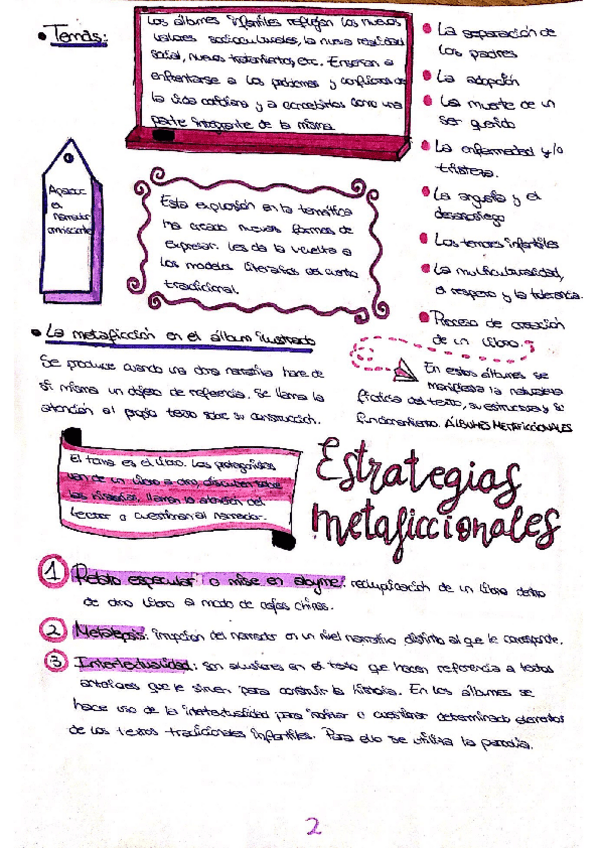 Temas:
Los álbumes infantiles reflejan los nuevos
valores socioculturales, la nueva realidad
social, nuevos tratamientos, etc. Enseñan a
enfrentarse a los problemas y conflictos de
la vida cotidiana y a concebirlos como una
parte integrante de la misma.
La separación de
los padres
La adopción
La muerte de un
ser querido
La enfermedad y/o
tristeza.
La angustia y el
desasosiego
Los temores infantiles
La multiculturalidad,
el respeto y la tolerancia.
Proceso de creación
de un libro.
Aparece
el
narrador
omnisciente
Esta explosión en la temática
ha creado nuevas formas de
expresar. Les da la vuelta a
los modelos literarios del cuento
tradicional.
La metaficción en el álbum ilustrado
Se produce cuando una obra narrativa hace de
si misma un objeto de referencia. Se llama la
atención al propio texto sobre su construcción.
En estos álbumes se
manifiesta la naturaleza
ficticia del texto, su estructura y su
funcionamiento. ÁLBUMES METAFICCIONALES
El tema es el libro. Los protagonistas
van de un libro a otro
las historias, llaman la atención del
lector o cuestionan al narrador.
Estrategias
metaficcionales
1 Relato especular o mise en abyme: duplicación de un libro dentro
de otro libro a modo de cajas chinas.
2 Metalepsis: irrupción del narrador en un nivel narrativo distinto al que le corresponde.
3 Intertextualidad: son alusiones en el texto que hacen referencia a textos
anteriores que le sirven para construir la historia. En los álbumes se
hace uso de la intertextualidad para o cuestionar determinado elementos
de los textos tradicionales infantiles. Para ello se utiliza la parodia.
2